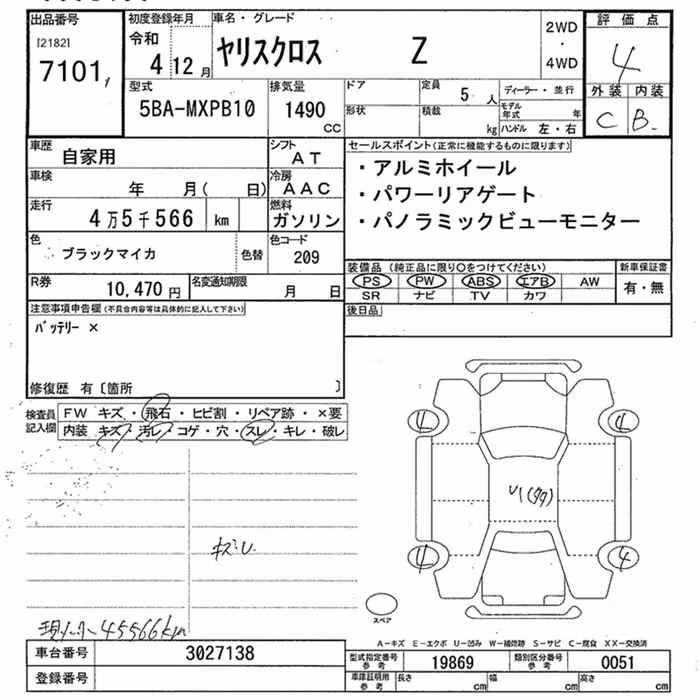 出品番号
[2182]
7101
初度登録年月
令和
4 12 月
車名・グレード
ヤリスクロス Z
2WD
・
4WD
評価点
4
外装 内装
C B
型式
5BA-MXPB10
排気量
1490
CC
ドア
形状
定員
5 人
積載
kg
ディーラー・並行
モデル年式 年
ハンドル 左・右
車歴
自家用
シフト
AT
車検
年 月( 日)
冷房
AAC
走行
4万5千566 km
燃料
ガソリン
色
ブラックマイカ
色替
色コード
209
R券
10,470 円
名変通知期限
月 日
セールスポイント(正常に機能するものに限ります)
・アルミホイール
・パワーリアゲート
・パノラミックビューモニター
装備品 (純正品に限り〇をつけてください)
PS PW ABS エアB AW
SR ナビ TV カワ
新車保証書
有・無
後日品
注意事項申告欄(不具合内容等は具体的に記入して下さい)
バッテリー ×
修復歴 有〔箇所 〕
検査員
記入欄
FW キズ・飛石・ヒビ割・リペア跡・×要
内装 キズ・汚レ・コゲ・穴・スレ・キレ・破レ
キズU
現メーター45566km
4
4
U1(99)
4
4
スペア
A-キズ E-エクボ U-凹み W-補修跡 S-サビ C-腐食 XX-交換済
車台番号
3027138
登録番号
型式指定番号
参考
19869
類別区分番号
参考
0051
車庫証明用
参考
長さ cm
幅 cm
高さ cm